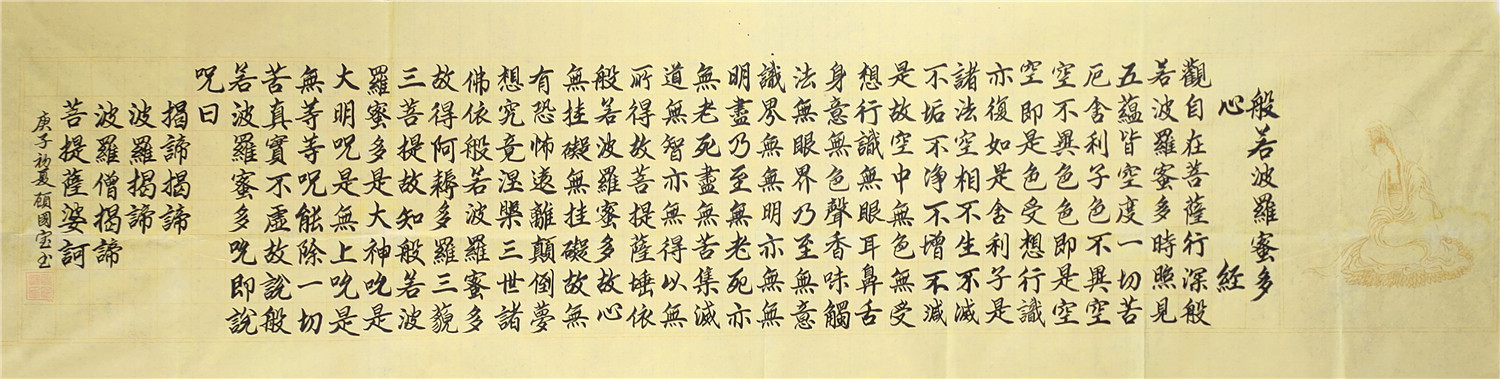 般若波羅蜜多
心經
觀自在菩薩行深般
若波羅蜜多時照見
五蘊皆空度一切苦
厄舍利子色不異空
空不異色色即是空
空即是色受想行識
亦復如是舍利子是
諸法空相不生不滅
不垢不淨不增不減
是故空中無色無受
想行識無眼耳鼻舌
身意無色聲香味觸
法無眼界乃至無意
識界無無明亦無無
明盡乃至無老死亦
無老死盡無苦集滅
道無智亦無得以無
所得故菩提薩埵依
般若波羅蜜多故心
無挂礙無挂礙故無
有恐怖遠離顛倒夢
想究竟涅槃三世諸
佛依般若波羅蜜多
故得阿耨多羅三藐
三菩提故知般若波
羅蜜多是大神呪是
大明呪是無上呪是
無等等呪能除一切
苦真實不虛故說般
若波羅蜜多呪即說
呪曰
揭諦揭諦
波羅揭諦
波羅僧揭諦
菩提薩婆訶
庚子初夏顾國宝书